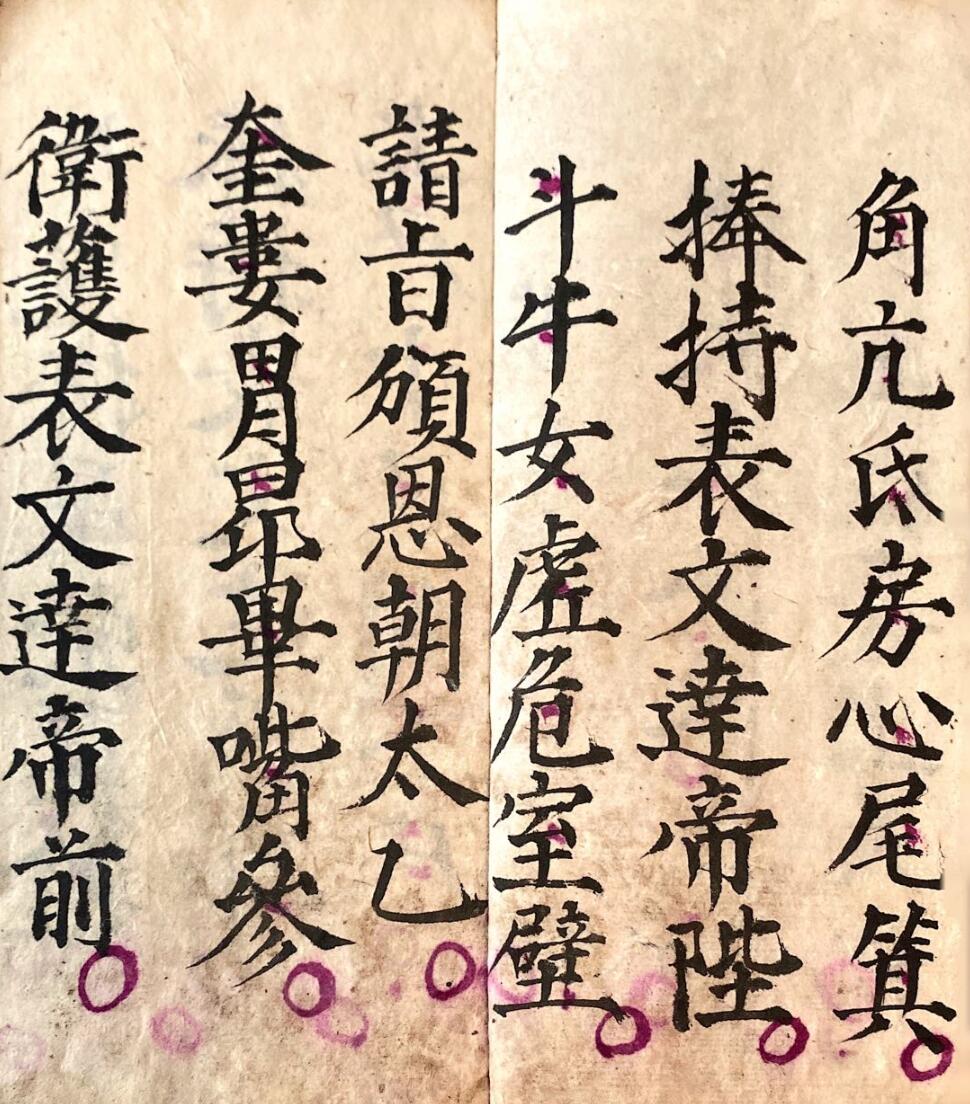 角亢氐房心尾箕
捧持表文達帝陛
斗牛女虛危室壁
請旨頒恩朝太乙
奎婁胃昴畢嘴參
衛護表文達帝前